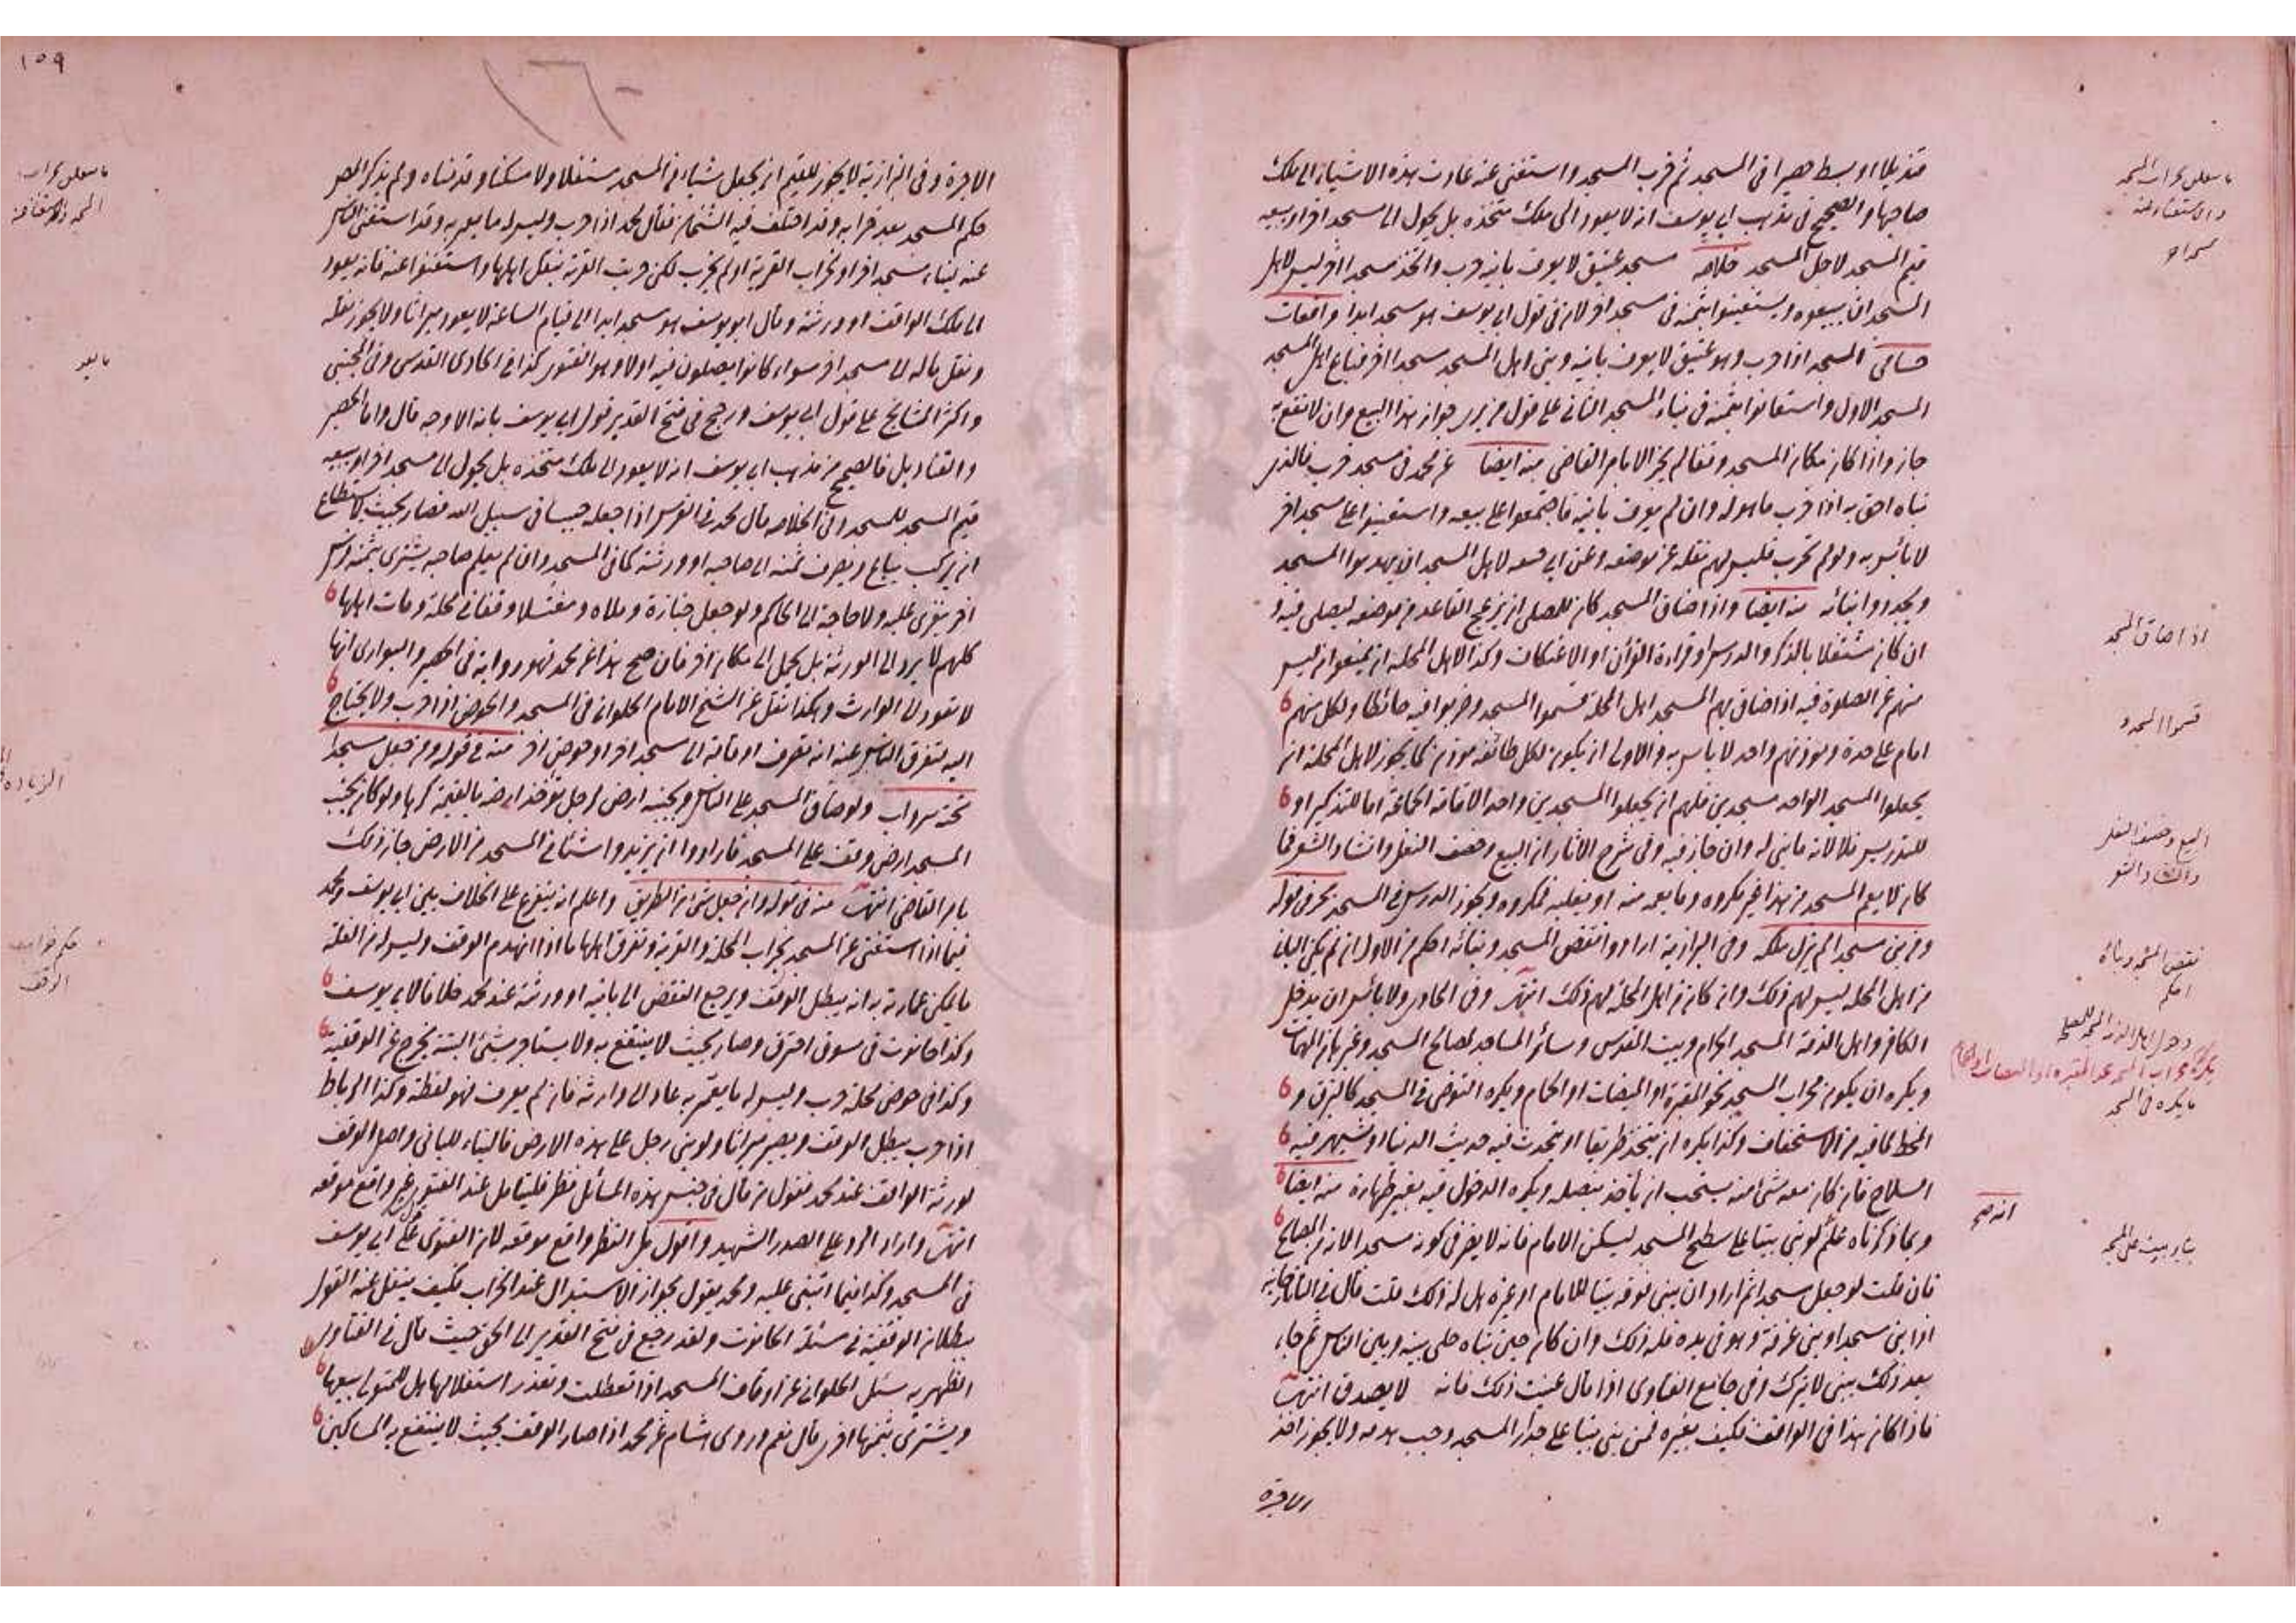 قنديلا او بسط حصيرا فى المسجد ثم خرب المسجد واستغنى عنه عادت هذه الاشياء الى ملك
صاحبها والصحيح فى مذهب ابى يوسف انه لا يعود الى ملك متخذه بل يحول الى مسجد اخر او يبيعه
قيم المسجد لاجل المسجد خلاصة مسجد عتيق لا يعرف بانيه خرب واتخذ مسجدا اخر ليس لاهل
المسجد ان يبيعوه ويستعينوا بثمنه فى مسجد اخر لان فى قول ابى يوسف هو مسجد ابدا واقعات
حسامى المسجد اذا خرب وهو عتيق لا يعرف بانيه وبنى اهل المسجد مسجدا اخر فباع اهل المسجد
المسجد الاول واستعانوا بثمنه فى بناء المسجد الثانى على قول من يرى جواز هذا البيع وان لا تقع
جاز واذا كان مكان المسجد لم يجز الامام القاضى منه ايضا عن محمد فى مسجد خرب فالذى
بناه احق به اذا خرب ما حوله وان لم يعرف بانيه فاجتمعوا على بيعه واستعينوا على مسجد اخر
لا بأس به ولو لم تخرب فليس لهم نقله عن موضعه وعن ابى لاهل المسجد ان يهدموا المسجد
ويجددوا بنائه منه ايضا واذا ضاق المسجد كان للمصلى ان يزعج القاعد من موضعه ليصلى فيه و
ان كان مشتغلا بالذكر والدرس او قراءة القرآن او الاعتكاف وكذا لاهل المحلة ان يمنعوا من ليس
منهم عن الصلوة فيه اذا ضاق بهم المسجد اهل المحلة قسموا المسجد وضربوا فيه حائطا ولكل منهم
امام على حدة ومؤذنهم واحد لا باس به والاولى ان يكون لكل طائفة مؤذن كما يجوز لاهل المحلة ان
يجعلوا المسجد الواحد مسجدين فلهم ان يجعلوا المسجدين واحد الاقامة الجماعة اما للتذكير او
للتدريس فلا لانه ما بنى له وان جاز فيه وفى شرح الاثار ان البيع وخصف النعل وانشاد الشعر مما
كان لا يعم المسجد من هذا غير مكروه وما يعمه منه او يغلبه فمكروه ويجوز الدرس فى المسجد بحر فى قوله
ومن بنى مسجدا لم يزل ملكه وفى البزازية ارادوا نقض المسجد وبنائه احكم من الاول ان لم يكن البانى
من اهل المحلة ليس لهم ذلك وان كان من اهل المحلة لهم ذلك انتهى وفى الحاوى ولا بأس ان يدخل
الكافر واهل الذمة المسجد الحرام وبيت المقدس وسائر المساجد لمصالح المسجد وغيرها من المهمات
ويكره ان يكون محراب المسجد نحو المقبرة او الميضات او الحمام ويكره التوضى فى المسجد كالبزق و
المخط لما فيه من الاستخفاف وكذا يكره ان يتخذ طريقا او يتحدث فيه حديث الدنيا او يشهر فيه
السلاح فان كان معه شئ منه يستحب ان يأخذ بنصله ويكره الدخول فيه بغير طهارة منه ايضا
وبما ذكرناه علم لو بنى بيتا على سطح المسجد ليسكن الامام فانه لا يضر فى كونه مسجدا لانه من المصالح
فان قلت لو جعل مسجدا ثم اراد ان يبنى فوقه بيتا للامام او غيره هل له ذلك قلت قال فى التاتارخانية
اذا بنى مسجدا وبنى غرفة وهو فى يده فله ذلك وان كان حين بناه خلى بينه وبين الناس ثم جاء
بعد ذلك يبنى لا يترك وفى جامع الفتاوى اذا قال عنيت ذلك فانه لا يصدق انتهى
فاذا كان هذا فى الواقف فكيف بغيره فمن بنى بيتا على جدار المسجد وجب هدمه ولا يجوز اخذ
الاجرة
اذا ضاق المسجد
قسموا المسجد
البيع وخصف النعل
وانشاد الشعر
نقض المسجد وبنائه
احكم
ما يكره فى المسجد
انه صح
بناء بيت على المسجد
١٥٩
١٦٠
الاجرة وفى البزازية لا يجوز للقيم ان يجعل شيئا من المسجد مستغلا ولا مسكنا وقدمناه ولم يذكر المص
حكم المسجد بعد خرابه وقد اختلف فيه الشيخان فقال محمد اذا خرب وليس له ما يعمر به وقد استغنى الناس
عنه لبناء مسجد اخر او لخراب القرية او لم يخرب لكن خربت القرية بنقل اهلها واستغنوا عنه فانه يعود
الى ملك الواقف او ورثته وقال ابو يوسف هو مسجد ابدا الى قيام الساعة لا يعود ميراثا ولا يجوز نقله
ونقل ماله الى مسجد اخر سواء كانوا يصلون فيه او لا وهو الفتوى كذا فى الحاوى القدسى وفى المجتبى
واكثر المشايخ على قول ابى يوسف ورجح فى فتح القدير قول ابى يوسف بانه الاوجه قال واما الحصر
والقناديل فالصحيح من مذهب ابى يوسف انه لا يعود الى ملك متخذه بل يحول الى مسجد اخر او يبيعه
قيم المسجد للمسجد وفى الخلاصة قال محمد فى الفرس اذا جعله حبيسا فى سبيل الله فصار بحيث لا يستطاع
ان يركب يباع ويصرف ثمنه الى صاحبه او ورثته كما فى المسجد وان لم يعلم صاحبه يشترى بثمنه فرس
اخر يغزى عليه ولا حاجة الى الحاكم ولو جعل جنازة وملاءة ومغتسلا وقفا فى محلة ومات اهلها
كلهم لا يرد الى الورثة بل يحمل الى مكان اخر فان صح هذا عن محمد فهو رواية فى الحصير والبوارى انها
لا تعود الى الوارث وهكذا نقل عن الشيخ الامام الحلوانى فى المسجد والحوض اذا خرب ولا يحتاج
اليه لتفرق الناس عنه انه تصرف اوقافه الى مسجد اخر او حوض اخر منه فى قوله ومن جعل مسجدا
تحته سرداب ولو ضاق المسجد على الناس وبجنبه ارض لرجل يؤخذ ارضه بالقيمة كرها ولو كان بجنب
المسجد ارض وقف على المسجد فارادوا ان يزيدوا شيئا فى المسجد من الارض جاز ذلك
بامر القاضى انتهى منه فى قوله وان جعل شئ من الطريق واعلم انه يتفرع على الخلاف بين ابى يوسف ومحمد
فيما اذا استغنى عن المسجد بخراب المحلة والقرية وتفرق اهلها ما اذا انهدم الوقف وليس له من الغلة
ما يمكن عمارته به انه يبطل الوقف ويرجع النقض الى بانيه او ورثته عند محمد خلافا لابى يوسف
وكذا حانوت فى سوق احترق وصار بحيث لا ينتفع به ولا يستأجر بشئ البتة يخرج عن الوقفية
وكذا فى حوض محلة خرب وليس له ما يعمر به عاد الى وارثه فان لم يعرف فهو لقطة وكذا الرباط
اذا خرب يبطل الوقف ويصير ميراثا ولو بنى رجل على هذه الارض فالبناء للبانى واصل الوقف
لورثة الواقف عند محمد فقول من قال فى جنس هذه المسائل نظر فليتأمل عند الفتوى غير واقع موقعه
انتهى واراد الرد على الصدر الشهيد واقول بل النظر واقع موقعه لان الفتوى على قول ابى يوسف
فى المسجد وكذا فيما انبنى عليه ومحمد يقول بجواز الاستبدال عند الخراب فكيف ينقل عنه القول
ببطلان الوقفية فى مسئلة الحانوت ولقد رجع فى فتح القدير الى الحق حيث قال فى الفتاوى
الظهيرية سئل الحلوانى عن اوقاف المسجد اذا تعطلت وتعذر استغلالها هل للمتولى بيعها
ويشترى بثمنها اخرى قال نعم وروى هشام عن محمد اذا صار الوقف بحيث لا ينتفع به المساكين
حكم خراب
الوقف